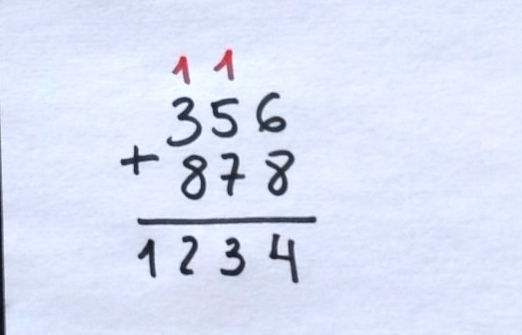 1 1
356
+ 878
1234